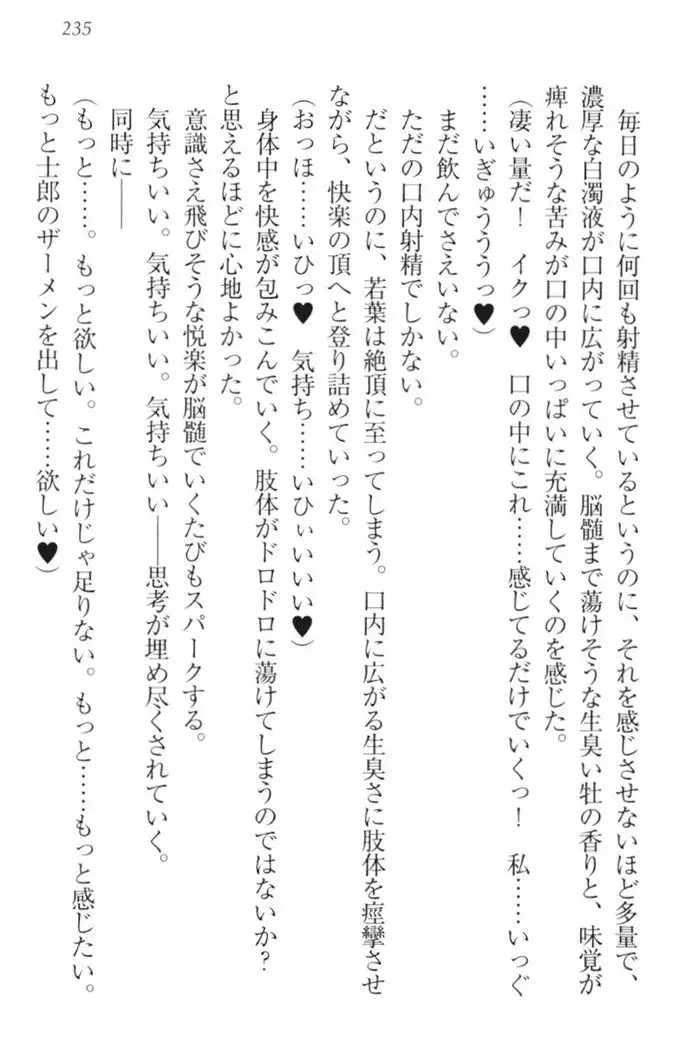 235
毎日のように何回も射精させているというのに、それを感じさせないほど多量で、
濃厚な白濁液が口内に広がっていく。脳髄まで蕩けそうな生臭い牡の香りと、味覚が
痺れそうな苦みが口の中いっぱいに充満していくのを感じた。
（凄い量だ！　イクっ♥　口の中にこれ……感じてるだけでいくっ！　私……いっぐ
……いぎゅうううっ♥）
まだ飲んでさえいない。
ただの口内射精でしかない。
だというのに、若葉は絶頂に至ってしまう。口内に広がる生臭さに肢体を痙攣させ
ながら、快楽の頂へと登り詰めていった。
（おっほ……いひっ♥　気持ち……いひぃいいい♥）
身体中を快感が包みこんでいく。肢体がドロドロに蕩けてしまうのではないか？
と思えるほどに心地よかった。
意識さえ飛びそうな悦楽が脳髄でいくたびもスパークする。
気持ちいい。気持ちいい。気持ちいい――思考が埋め尽くされていく。
同時に――
（もっと……。もっと欲しい。これだけじゃ足りない。もっと……もっと感じたい。
もっと士郎のザーメンを出して……欲しい♥）